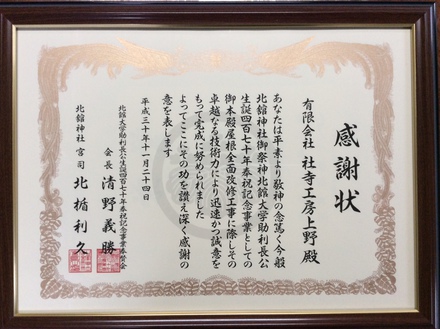 感謝状
有限会社 社寺工房上野 殿
あなたは平素より敬神の念篤く今般
北舘神社御祭神北舘大学助利長公
生誕四百七十年奉祝記念事業としての
御本殿屋根全面改修工事に際しその
卓越なる技術力により迅速かつ誠意を
もって完成に努められました
よってここにその功を讃え深く感謝の
意を表します
平成三十年十一月二十四日
北舘大学助利長公生誕四百七十年奉祝記念事業奉賛会
会長 清野義勝
北舘神社宮司 北楯利久